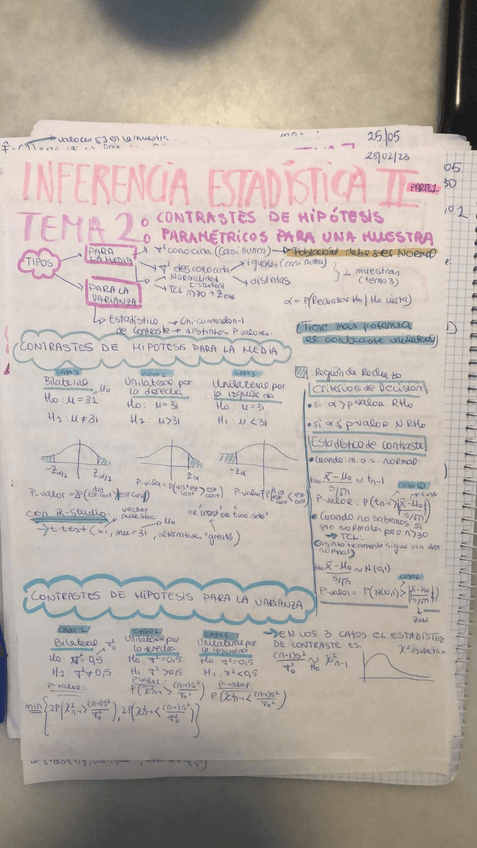 valores si en la muestra
25/05
28/02/23
INFERENCIA ESTADÍSTICA II PARTE 1
TEMA 2: CONTRASTES DE HIPÓTESIS
PARAMÉTRICOS PARA UNA MUESTRA
TIPOS
PARA LA MEDIA
σ² conocida (casi nunca) → Población debe ser Normal
σ² desconocida
iguales (casi nunca)
distintas
2 muestras (tema 3)
Normalidad
t-student
TCL n>30 → Zobs
PARA LA VARIANZA
Estadístico de contraste
Chi-cuadrado
distintos P-valores
α = P(Rechazar H₀ | H₀ cierta)
Tiene más potencia
el contraste unilateral
CONTRASTES DE HIPOTESIS PARA LA MEDIA
CASO 1
Bilateral
μ₀
H₀: μ=31
H₁: μ≠31
CASO 2
Unilateral por
la derecha
H₀: μ=31
H₁: μ>31
CASO 3
Unilateral por
la izquierda
H₀: μ=31
H₁: μ<31
-Zα/2
Zα/2
Zα
-Zα
con R-studio
vector muestra
μ₀
→ t-test (x₁, mu=31, alternative="greater")
Región de Rechazo
Criterios de Decisión
• si α > p-valor RH₀
• si α ≤ p-valor N RH₀
Estadístico de contraste
• Cuando m.a.s. normal:
x̄-μ₀ / s/√n ~ tn-1
• Cuando no sabemos si
son normales pero n>30
→ TCL:
(Asintóticamente sigue una dist normal)
x̄-μ₀ / s/√n ~ N(0,1)
Zobs
CONTRASTES DE HIPOTESIS PARA LA VARIANZA
CASO 1
Bilateral
H₀: σ²=0,5
H₁: σ²≠0,5
P-valor:
min{2P(χ²n-1 > (n-1)s²/σ₀²), 2P(χ²n-1 < (n-1)s²/σ₀²)}
CASO 2
Unilateral por
la derecha
H₀: σ²=0,5
H₁: σ²>0,5
P-valor:
P(χ²n-1 > (n-1)s²/σ₀²)
CASO 3
Unilateral por
la izquierda
H₀: σ²=0,5
H₁: σ²<0,5
P-valor
P(χ²n-1 < (n-1)s²/σ₀²)
→ EN LOS 3 CASOS EL ESTADÍSTICO
DE CONTRASTE ES:
(n-1)s²/σ₀² ~ χ²n-1